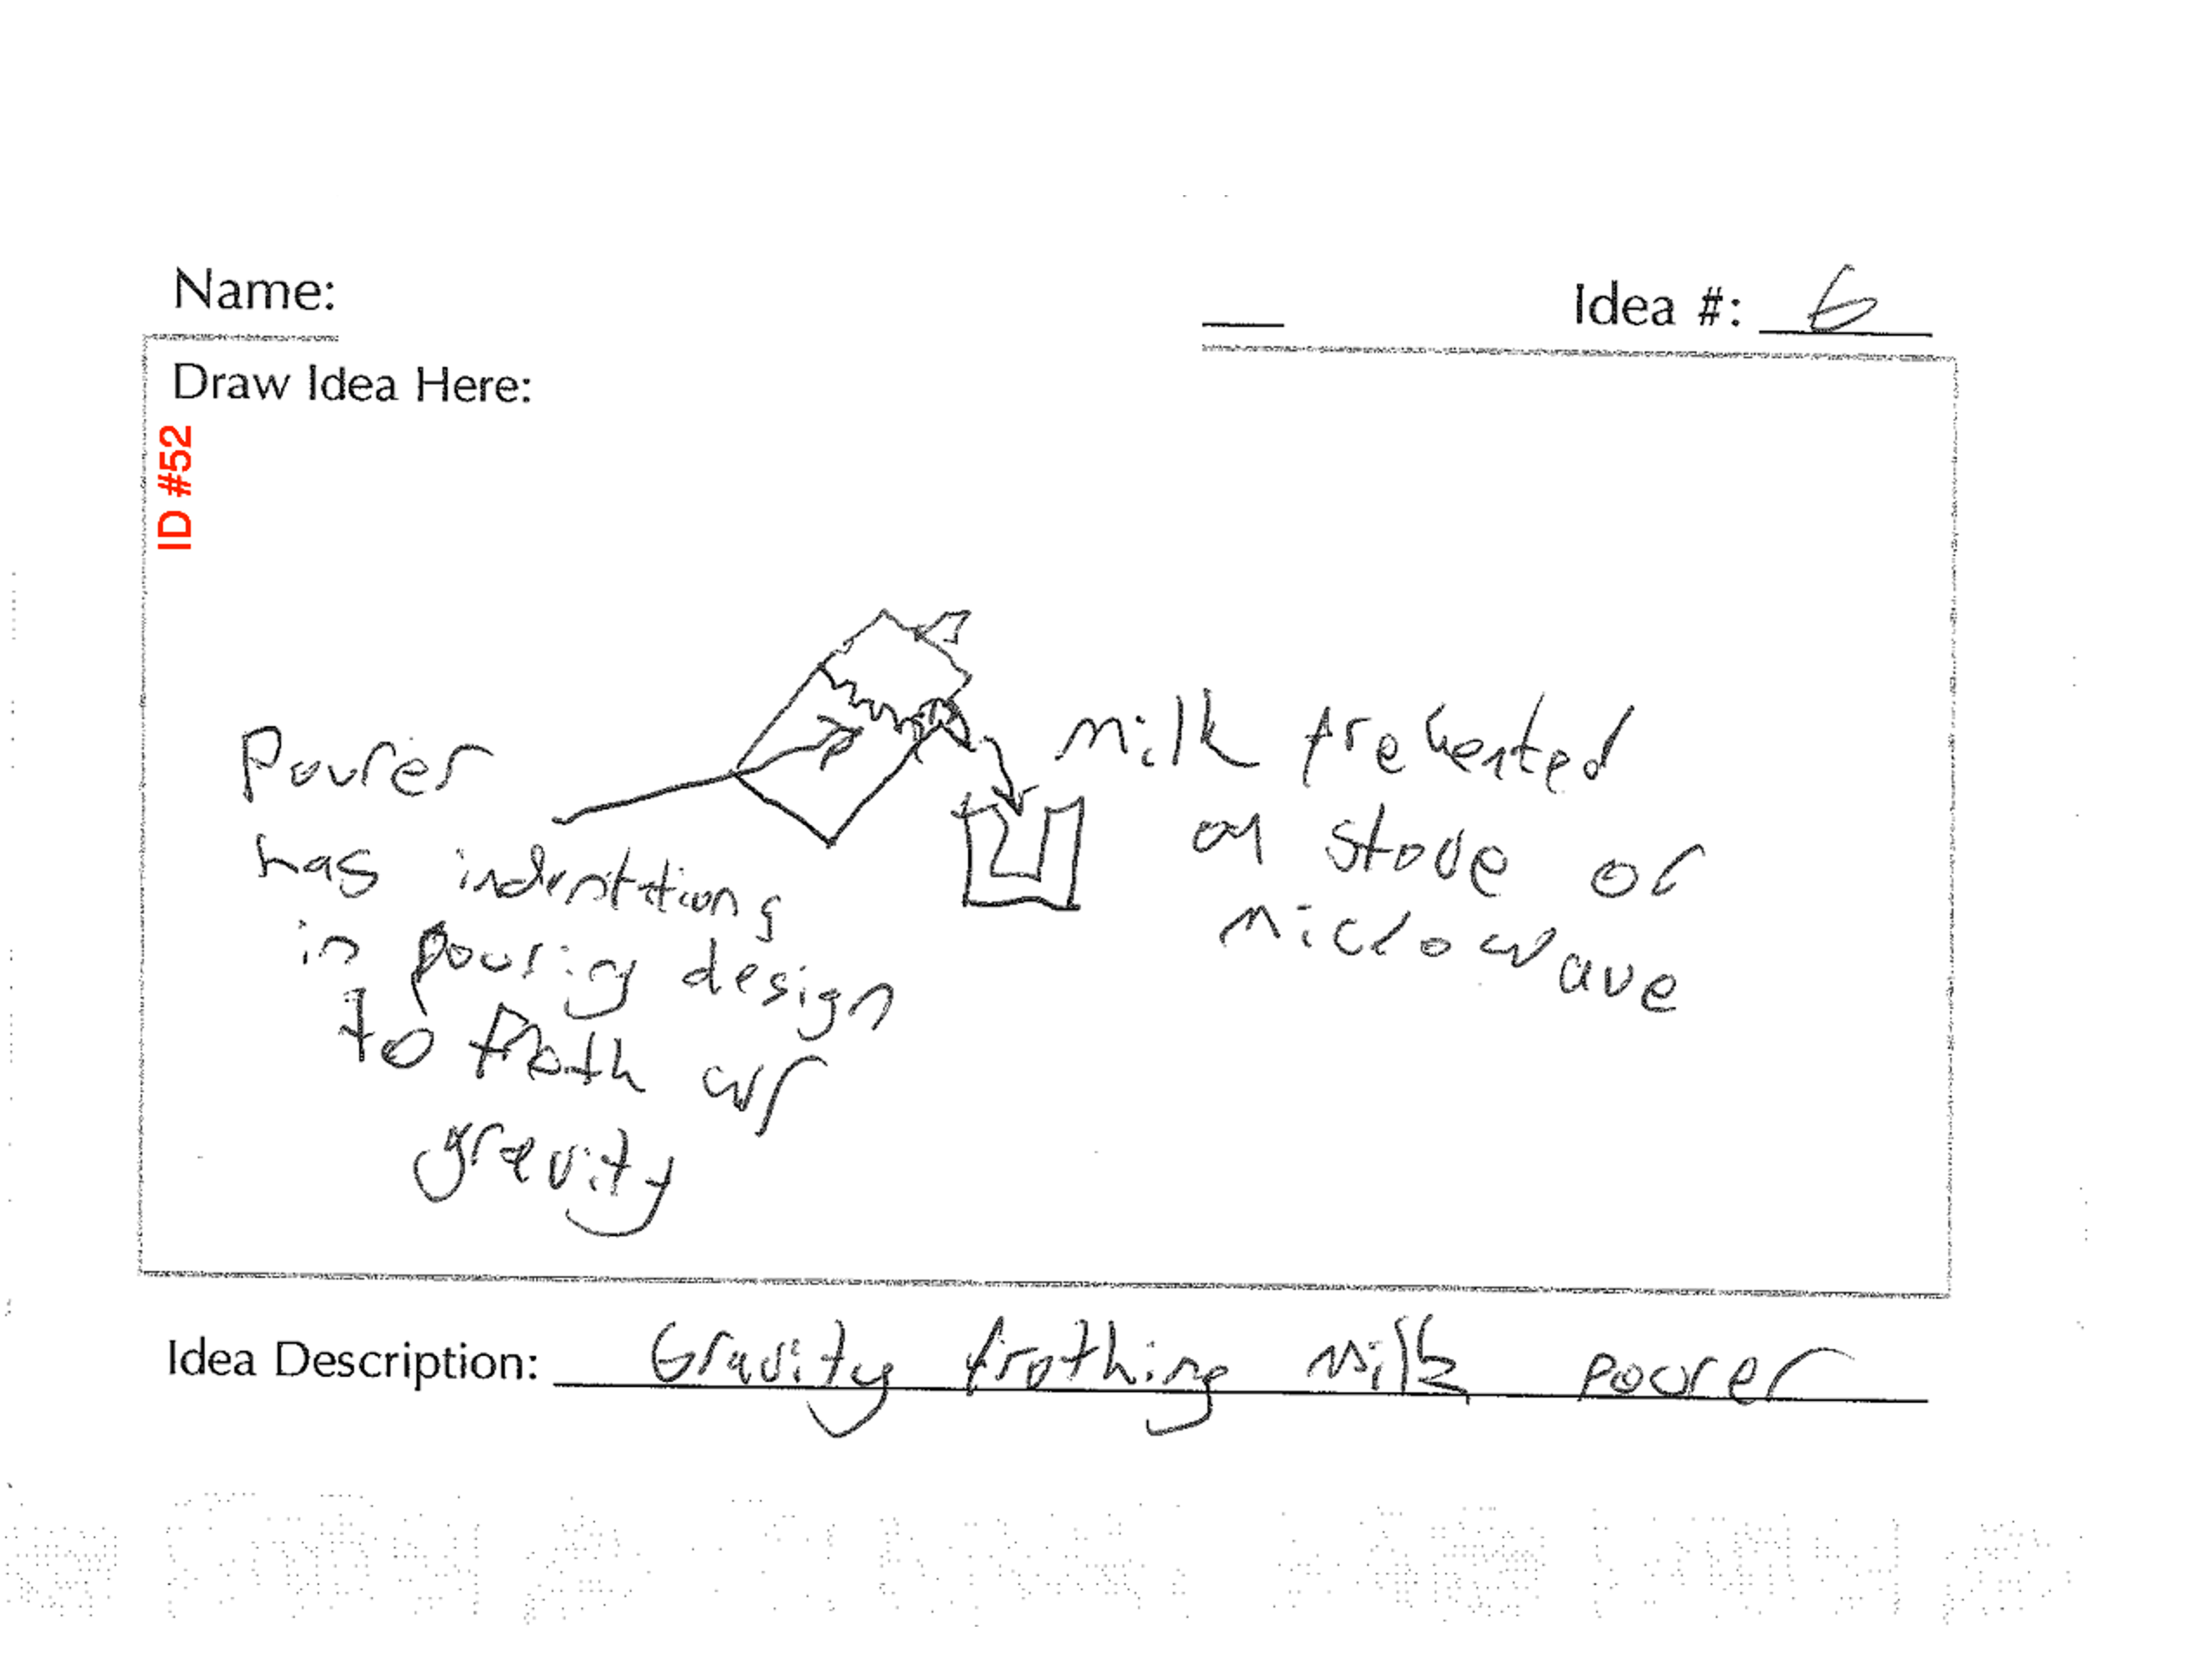 Name:
Idea #: 6
Draw Idea Here:
ID #52
Pourer
has indentations
in pouring design
to froth w/
gravity
milk preheated
on stove or
microwave
Idea Description: Gravity frothing milk pourer